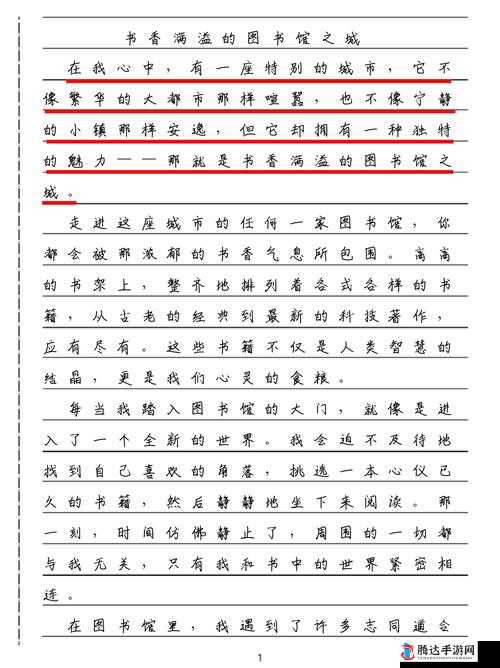 书香满溢的图书馆之城
在我心中，有一座特别的城市，它不
像繁华的大都市那样喧嚣，也不像宁静
的小镇那样安逸，但它却拥有一种独特
的魅力——那就是书香满溢的图书馆之
城。
走进这座城市的任何一家图书馆，你
都会被那浓郁的书香气息所包围。高高
的书架上，整齐地排列着各式各样的书
籍，从古老的经典到最新的科技著作，
应有尽有。这些书籍不仅是人类智慧的
结晶，更是我们心灵的食粮。
每当我踏入图书馆的大门，就像是进
入了一个全新的世界。我会迫不及待地
找到自己喜欢的角落，挑选一本心仪已
久的书籍，然后静静地坐下来阅读。那
一刻，时间仿佛静止了，周围的一切都
与我无关，只有我和书中的世界紧密相
连。
在图书馆里，我遇到了许多志同道合
1
腾达手游网